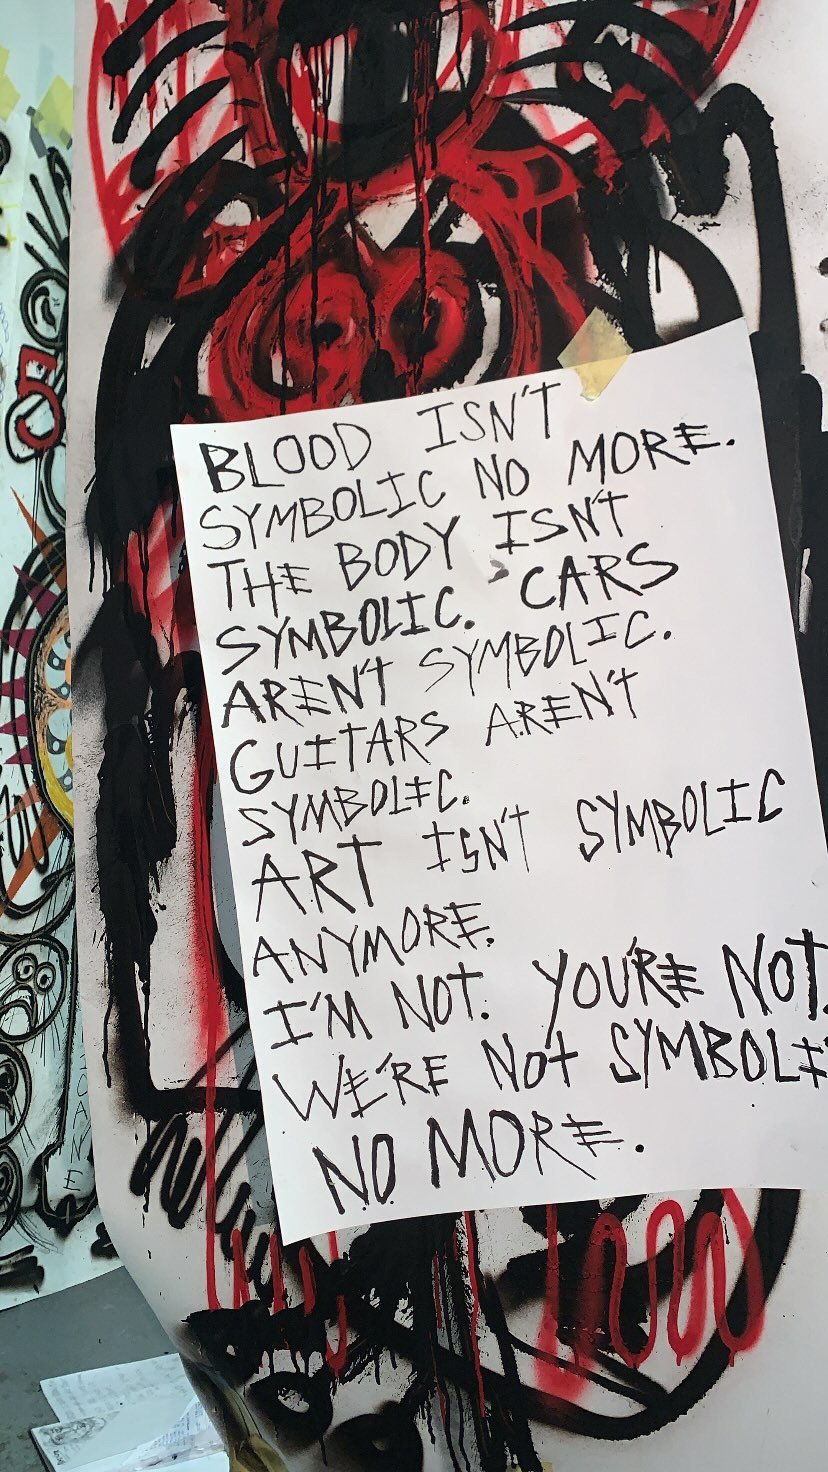 BLOOD ISN'T
SYMBOLIC NO MORE.
THE BODY ISN'T
SYMBOLIC. CARS
AREN'T SYMBOLIC.
GUITARS AREN'T
SYMBOLIC.
ART ISN'T SYMBOLIC
ANYMORE.
I'M NOT. YOU'RE NOT.
WE'RE NOT SYMBOLI
NO MORE.